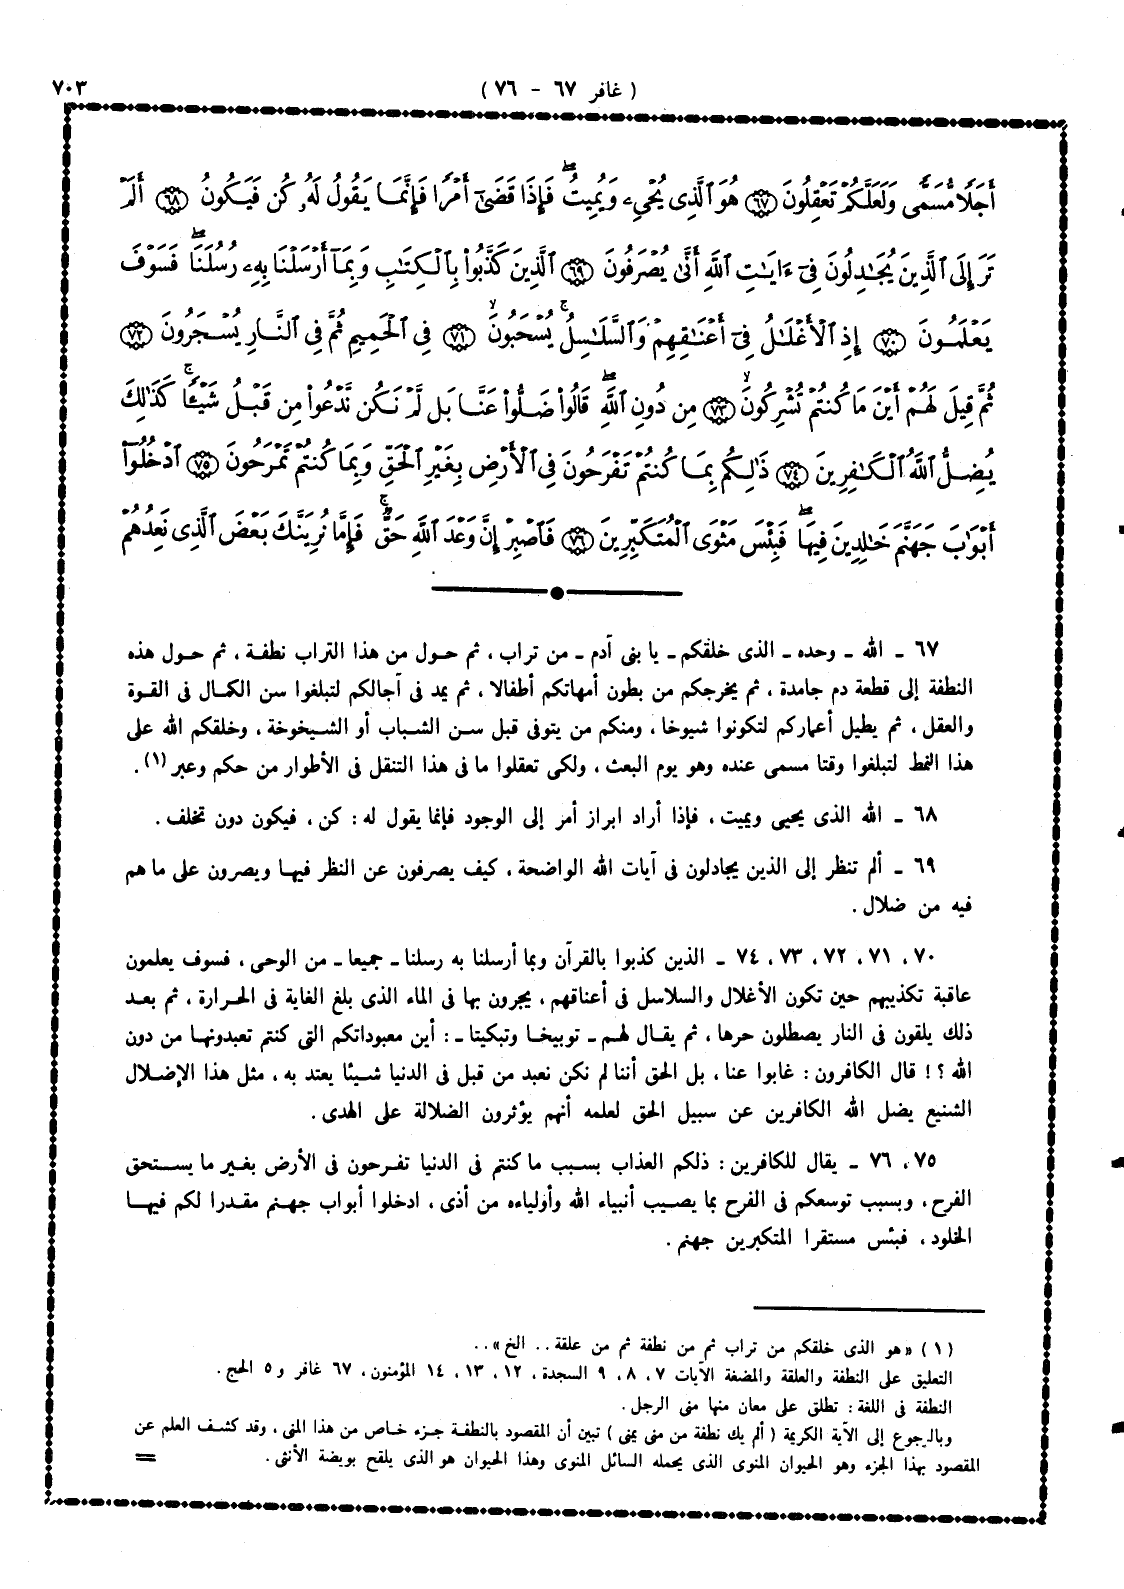 ( غافر ٦٧ - ٧٦ )
٧٠٣
أَجَلًا مُّسَمًّى وَلَعَلَّكُمْ تَعْقِلُونَ ﴿٦٧﴾ هُوَ ٱلَّذِى يُحْىِۦ وَيُمِيتُ ۖ فَإِذَا قَضَىٰٓ أَمْرًا فَإِنَّمَا يَقُولُ لَهُۥ كُن فَيَكُونُ ﴿٦٨﴾ أَلَمْ
تَرَ إِلَى ٱلَّذِينَ يُجَـٰدِلُونَ فِىٓ ءَايَـٰتِ ٱللَّهِ أَنَّىٰ يُصْرَفُونَ ﴿٦٩﴾ ٱلَّذِينَ كَذَّبُوا۟ بِٱلْكِتَـٰبِ وَبِمَآ أَرْسَلْنَا بِهِۦ رُسُلَنَا ۖ فَسَوْفَ
يَعْلَمُونَ ﴿٧٠﴾ إِذِ ٱلْأَغْلَـٰلُ فِىٓ أَعْنَـٰقِهِمْ وَٱلسَّلَـٰسِلُ ۚ يُسْحَبُونَ ۙ ﴿٧١﴾ فِى ٱلْحَمِيمِ ثُمَّ فِى ٱلنَّارِ يُسْجَرُونَ ﴿٧٢﴾
ثُمَّ قِيلَ لَهُمْ أَيْنَ مَا كُنتُمْ تُشْرِكُونَ ۙ ﴿٧٣﴾ مِن دُونِ ٱللَّهِ ۖ قَالُوا۟ ضَلُّوا۟ عَنَّا بَل لَّمْ نَكُن نَّدْعُوا۟ مِن قَبْلُ شَيْـًٔا ۚ كَذَٰلِكَ
يُضِلُّ ٱللَّهُ ٱلْكَـٰفِرِينَ ﴿٧٤﴾ ذَٰلِكُم بِمَا كُنتُمْ تَفْرَحُونَ فِى ٱلْأَرْضِ بِغَيْرِ ٱلْحَقِّ وَبِمَا كُنتُمْ تَمْرَحُونَ ﴿٧٥﴾ ٱدْخُلُوٓا۟
أَبْوَٰبَ جَهَنَّمَ خَـٰلِدِينَ فِيهَا ۖ فَبِئْسَ مَثْوَى ٱلْمُتَكَبِّرِينَ ﴿٧٦﴾ فَٱصْبِرْ إِنَّ وَعْدَ ٱللَّهِ حَقٌّ ۚ فَإِمَّا نُرِيَنَّكَ بَعْضَ ٱلَّذِى نَعِدُهُمْ
٦٧ ـ الله ـ وحده ـ الذى خلقكم ـ يا بنى آدم ـ من تراب ، ثم حول من هذا التراب نطفة ، ثم حول هذه
النطفة إلى قطعة دم جامدة ، ثم يخرجكم من بطون أمهاتكم أطفالا ، ثم يمد فى آجالكم لتبلغوا سن الكمال فى القوة
والعقل ، ثم يطيل أعماركم لتكونوا شيوخا ، ومنكم من يتوفى قبل سن الشباب أو الشيخوخة ، وخلقكم الله على
هذا النمط لتبلغوا وقتا مسمى عنده وهو يوم البعث ، ولكى تعقلوا ما فى هذا التنقل فى الأطوار من حكم وعبر (١) .
٦٨ ـ الله الذى يحيى ويميت ، فإذا أراد ابراز أمر إلى الوجود فإنما يقول له : كن ، فيكون دون تخلف .
٦٩ ـ ألم تنظر إلى الذين يجادلون فى آيات الله الواضحة ، كيف يصرفون عن النظر فيها ويصرون على ما هم
فيه من ضلال .
٧٠ ، ٧١ ، ٧٢ ، ٧٣ ، ٧٤ ـ الذين كذبوا بالقرآن وبما أرسلنا به رسلنا ـ جميعا ـ من الوحى ، فسوف يعلمون
عاقبة تكذيبهم حين تكون الأغلال والسلاسل فى أعناقهم ، يجرون بها فى الماء الذى بلغ الغاية فى الحرارة ، ثم بعد
ذلك يلقون فى النار يصطلون حرها ، ثم يقال لهم ـ توبيخا وتبكيتا ـ : أين معبوداتكم التى كنتم تعبدونها من دون
الله ؟ ! قال الكافرون : غابوا عنا ، بل الحق أننا لم نكن نعبد من قبل فى الدنيا شيئا يعتد به ، مثل هذا الإضلال
الشنيع يضل الله الكافرين عن سبيل الحق لعلمه أنهم يؤثرون الضلالة على الهدى .
٧٥ ، ٧٦ ـ يقال للكافرين : ذلكم العذاب بسبب ما كنتم فى الدنيا تفرحون فى الأرض بغير ما يستحق
الفرح ، وبسبب توسعكم فى الفرح بما يصيب أنبياء الله وأولياءه من أذى ، ادخلوا أبواب جهنم مقدرا لكم فيها
الخلود ، فبئس مستقرا المتكبرين جهنم .
( ١ ) « هو الذى خلقكم من تراب ثم من نطفة ثم من علقة . . الخ » . .
التعليق على النطفة والعلقة والمضغة الآيات ٧ ، ٨ ، ٩ السجدة ، ١٢ ، ١٣ ، ١٤ المؤمنون ، ٦٧ غافر و ٥ الحج .
النطفة فى اللغة : تطلق على معان منها منى الرجل .
وبالرجوع إلى الآية الكريمة ( ألم يك نطفة من منى يمنى ) تبين أن المقصود بالنطفة جزء خاص من هذا المنى ، وقد كشف العلم عن
المقصود بهذا الجزء وهو الحيوان المنوى الذى يحمله السائل المنوى وهذا الحيوان هو الذى يلقح بويضة الأنثى . =